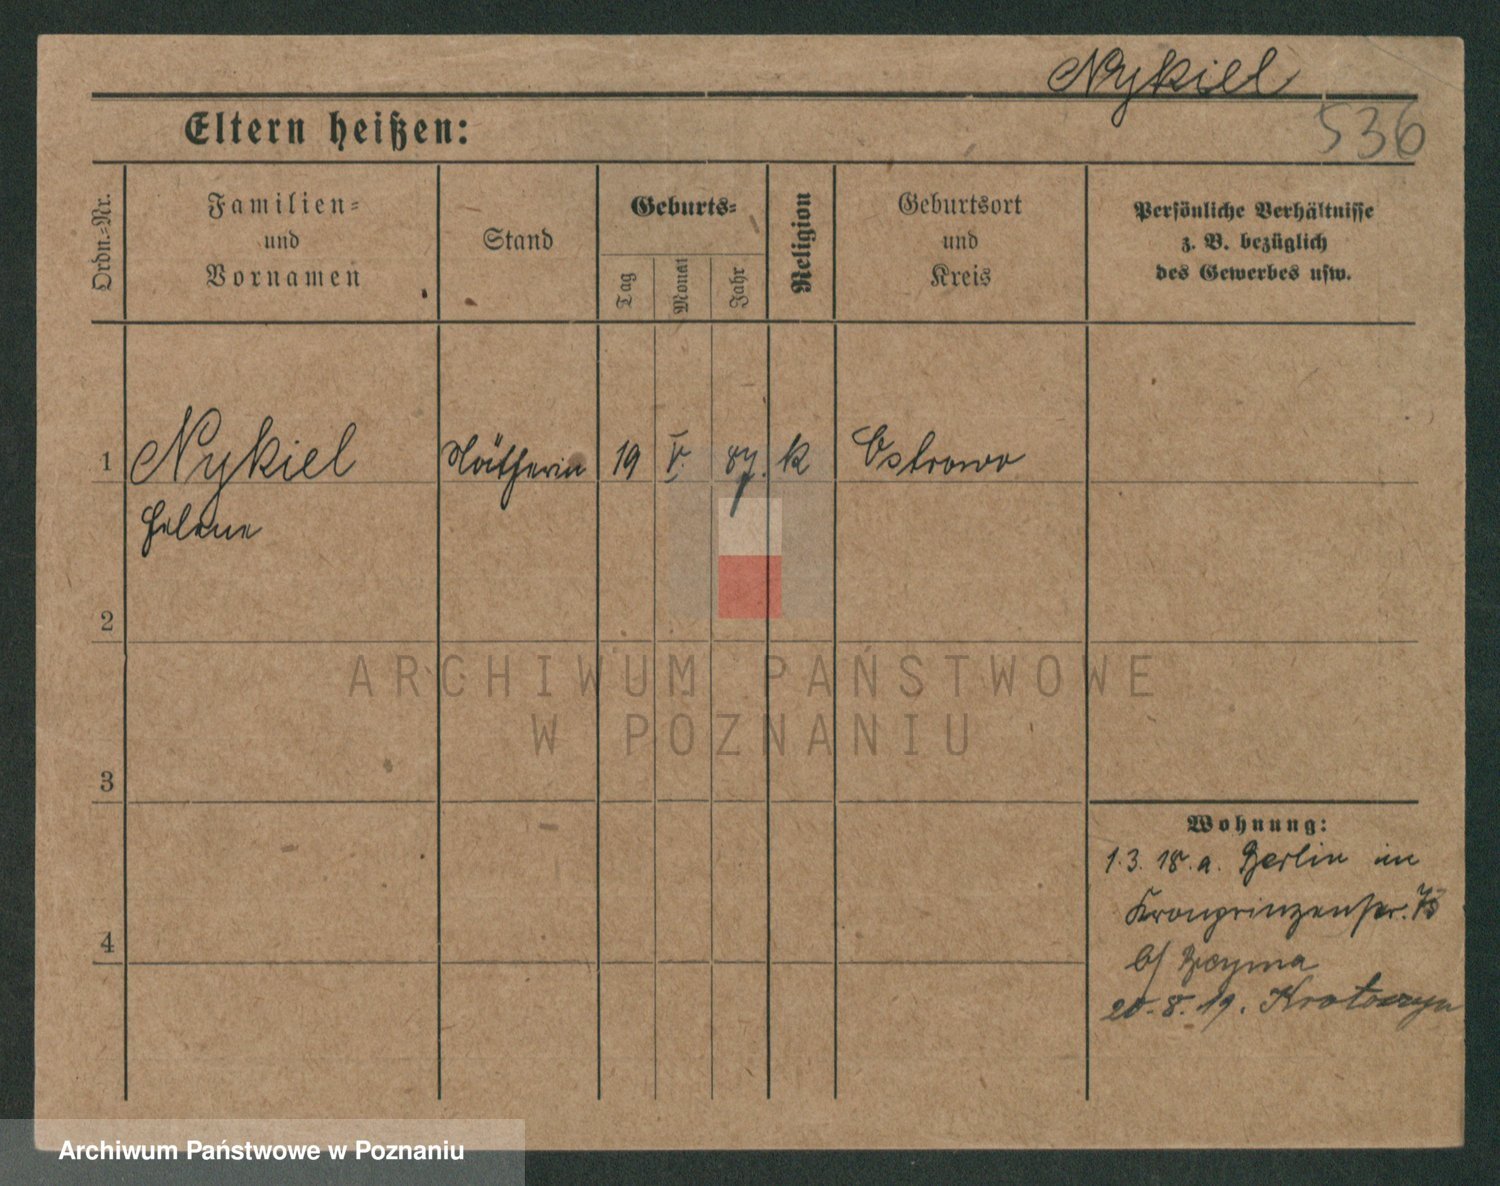 Nykiel
536
Eltern heißen:
Ordn.-Nr.
Familien- und Vornamen
Stand
Geburts-
Tag
Monat
Jahr
Religion
Geburtsort und Kreis
Persönliche Verhältnisse
z. B. bezüglich
des Gewerbes usw.
1 Nykiel Nätherin 19 V. 87. k Ostrowo
Helene
2
3
4
Wohnung:
1.3. 18. a. Berlin in
Kronprinzenstr. 75
b/
20.8.19. Krotoszyn
ARCHIWUM PAŃSTWOWE
W POZNANIU
Archiwum Państwowe w Poznaniu